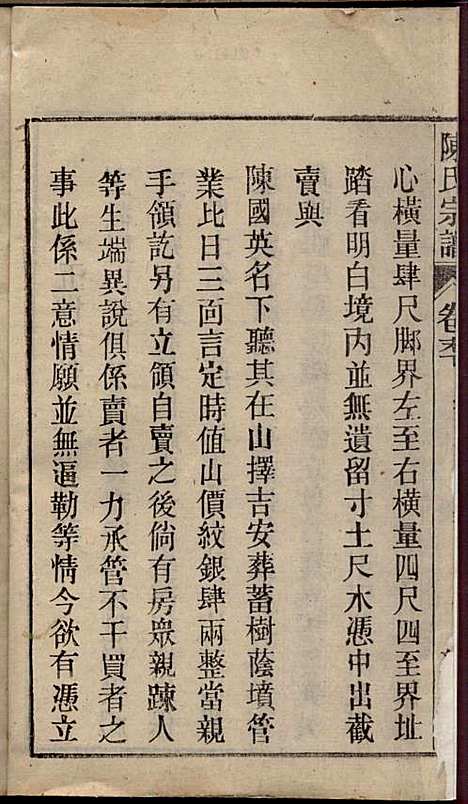 陳氏宗譜 卷
心橫量肆尺脚界左至右橫量四尺四至界址
踏看明白境内並無遺留寸土尺木憑中出截
賣與
陳國英名下聽其在山擇吉安葬蓄樹蔭墳管
業比日三面言定時值山價紋銀肆兩整當親
手領訖另有立領自賣之後倘有房衆親踈人
等生端異說俱係賣者一力承管不干買者之
事此係二意情願並無逼勒等情今欲有憑立